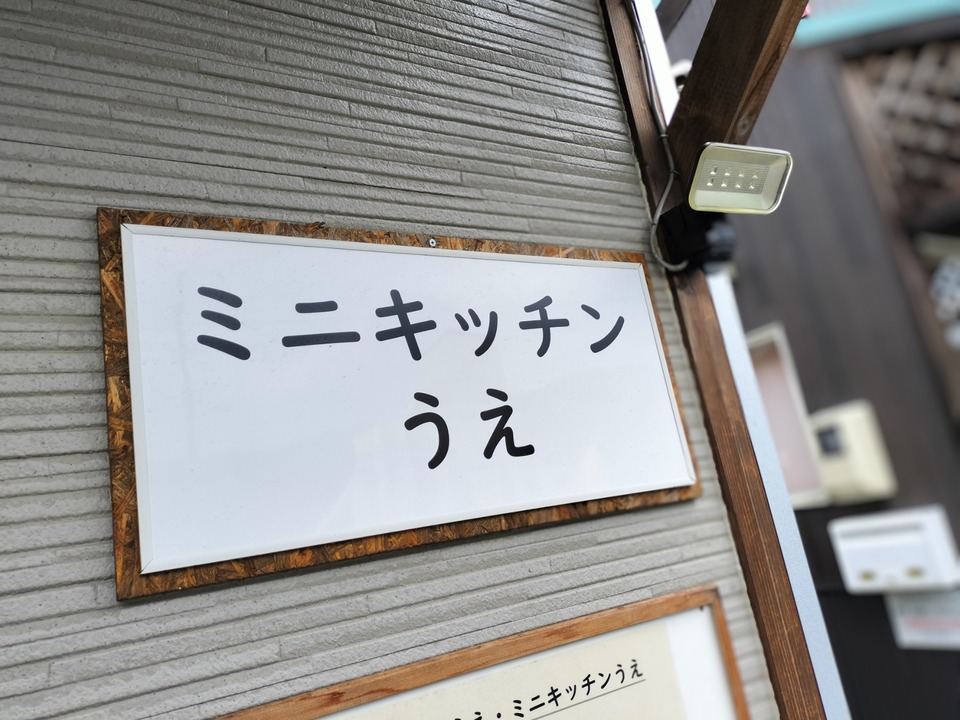 ミニキッチン
うえ
・ミニキッチンうえ